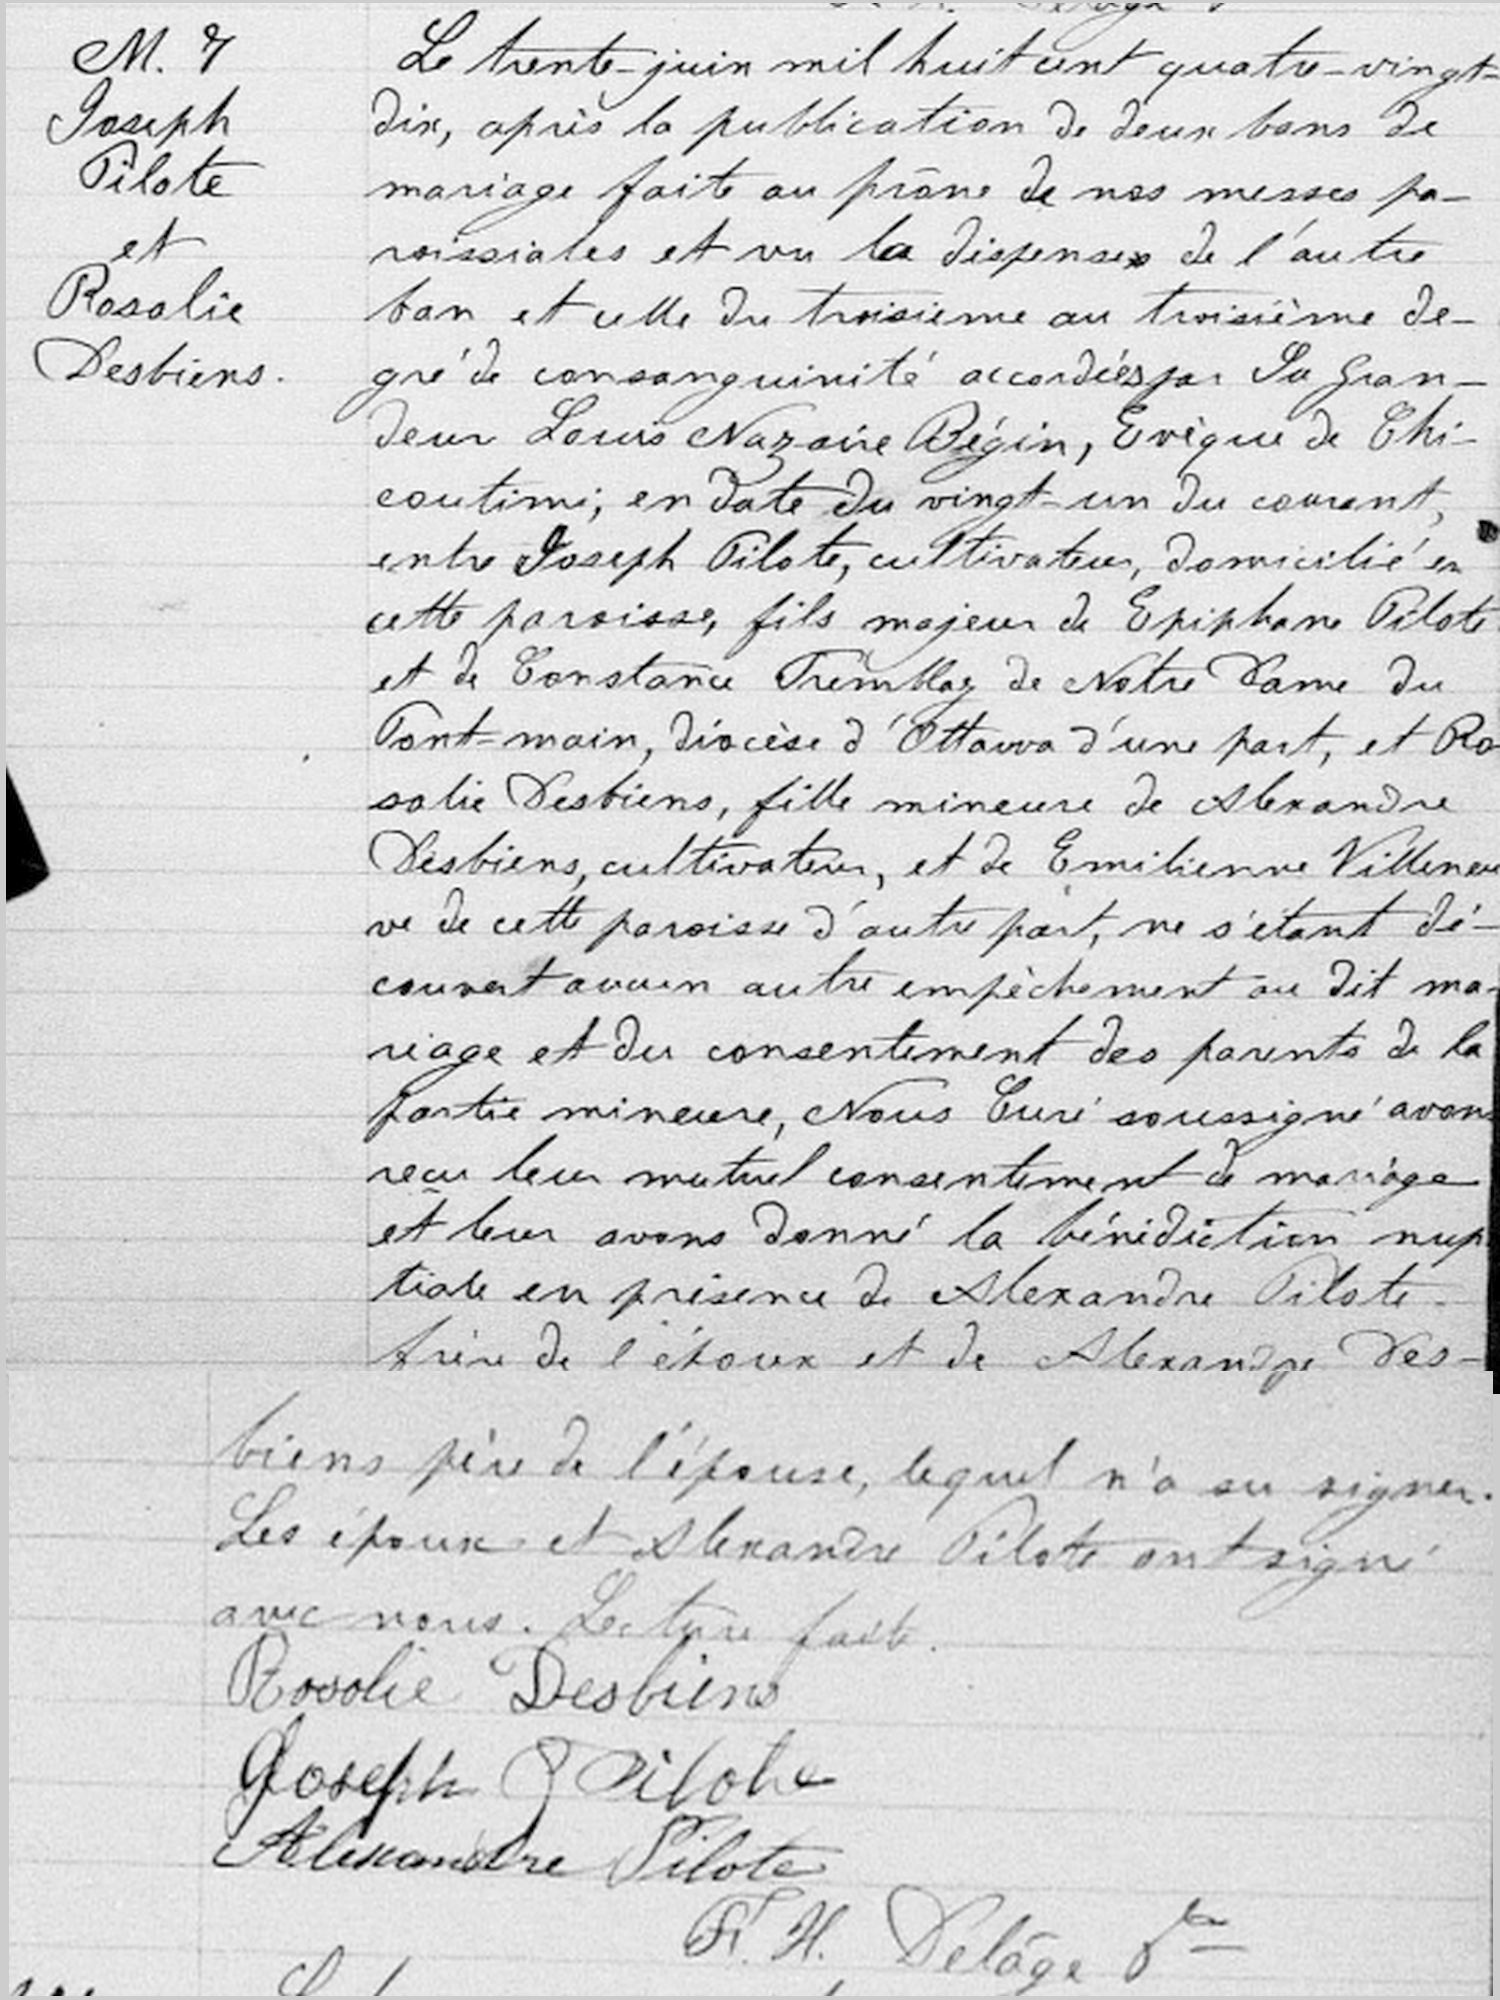 M. 7
Joseph
Pilote
et
Rosalie
Desbiens.
Le trente-juin mil huit cent quatre-vingt-
dix, après la publication de deux bans de
mariage faite au prône de nos messes pa-
roissiales et vu la dispense de l'autre
ban et celle du troisieme au troisième de-
gré de consanguinité accordées par Sa Gran-
deur Louis Nazaire Bégin, Evêque de Chi-
coutimi, en date du vingt-un du courant,
entre Joseph Pilote, cultivateur, domicilié en
cette paroisse, fils majeur de Epiphane Pilote
et de Constance Tremblay de Notre Dame du
Pont-main, diocèse d'Ottawa d'une part, et Ro
salie Desbiens, fille mineure de Alexandre
Desbiens, cultivateur, et de Emilienne Villeneu
ve de cette paroisse d'autre part, ne s'étant dé-
couvert aucun autre empêchement au dit ma-
riage et du consentement des parents de la
partie mineure, Nous Curé soussigné avons
reçu leur mutuel consentement de mariage
et leur avons donné la bénédiction nup
tiale en présence de Alexandre Pilote
frère de l'époux et de Alexandre Des-
biens père de l'épouse, lequel n'a su signer.
Les époux et Alexandre Pilote ont signé
avec nous. Lecture faite.
Rosolie Desbiens
Joseph Pilote
Alexandre Pilote
F. H. Delâge Ptre